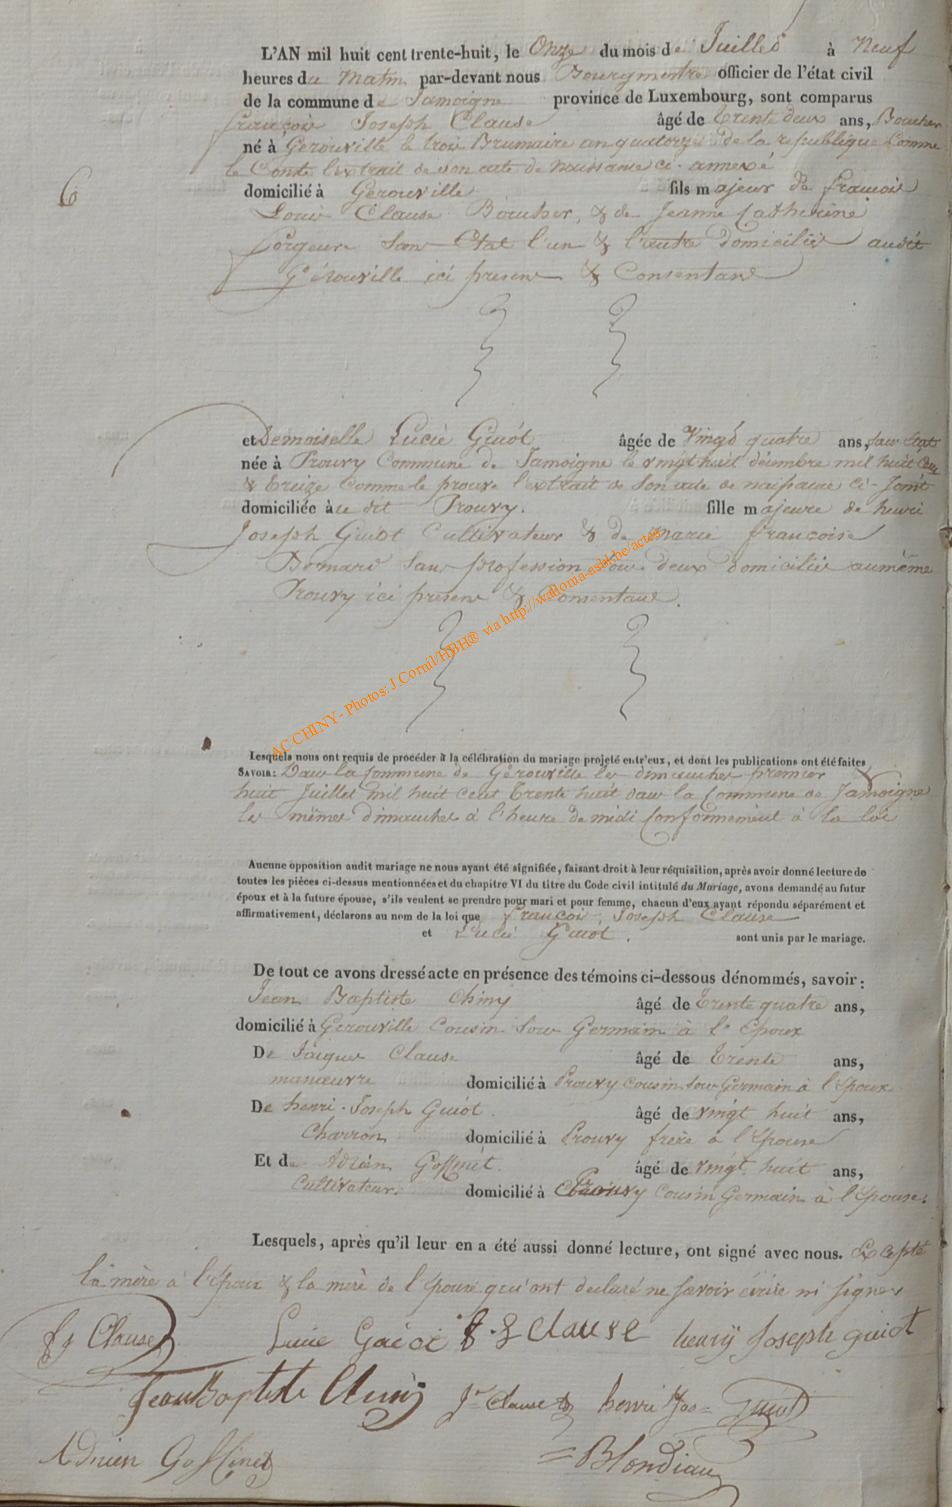 L'AN mil huit cent trente-huit, le Onze du mois de Juillet à Neuf
heures du Matin par-devant nous Bourgmestre officier de l'état civil
de la commune de Jamoigne province de Luxembourg, sont comparus
françois Joseph Clause âgé de trente deux ans, Boucher
né à Gerouville le trois Brumaire an quatorze de la republique Comme
le Conste l'extrait de son acte de Naissance ci-annexé
6
domicilié à Gérouville fils majeur de françois
Louis Clause Boucher, & de Jeanne Catherine
forgeur San Etat l'un & l'autre domiciliés audit
Gérouville ici présens & Consentans
et Demoiselle Lucie Guiot âgée de Vingt quatre ans, san état
née à Prouvy Commune de Jamoigne le vingt huit décembre mil huit Cens
& treize Comme le prouve l'extrait de son acte de naissance ci-joint
domiciliée à u dit Prouvy. fille majeure de henri
Joseph Guiot Cultivateur & de marie françoise
san profession tous deux domiciliés au même
Prouvy ici présens & Consentans.
AC CHINY - Photos: J.Cornil/HBH® via http://wallonia-asbl.be/actes
Lesquels nous ont requis de procéder à la célébration du mariage projeté entr'eux, et dont les publications ont été faites
SAVOIR: Dans la Commune de Gérouville les dimanches premier
huit Juillet mil huit cent trente huit dans la Commune de Jamoigne
les mêmes dimanches à l'heure de midi Conformément à la loi
Aucune opposition audit mariage ne nous ayant été signifiée, faisant droit à leur réquisition, après avoir donné lecture de
toutes les pièces ci-dessus mentionnées et du chapitre VI du titre du Code civil intitulé du Mariage, avons demandé au futur
époux et à la future épouse, s'ils veulent se prendre pour mari et pour femme, chacun d'eux ayant répondu séparément et
affirmativement, déclarons au nom de la loi que françois Joseph Clause
et Lucie Guiot. sont unis par le mariage.
De tout ce avons dressé acte en présence des témoins ci-dessous dénommés, savoir:
Jean Baptiste Chiny âgé de trente quatre ans,
domicilié à Gerouville Cousin sous Germain à l'Epoux
De Jacques Clause âgé de trente ans,
manœuvre domicilié à Prouvy cousin sous Germain à l'époux
De henri-Joseph Guiot. âgé de vingt huit ans,
Charron domicilié à Prouvy frère à l'Epouse
Et de Adrien Gossinet. âgé de vingt huit ans,
Cultivateur. domicilié à Prouvy cousin Germain à l'épouse.
Lesquels, après qu'il leur en a été aussi donné lecture, ont signé avec nous. Excepté
la mère à l'époux & la mère de l'épouse qui ont déclaré ne savoir écrire ni signer
f j Clause Lucie Guiot Clause henry Joseph guiot
Jean Baptiste Chiny Jq Clause henri Jos= Guiot
Adrien Gossinet =Blondiau